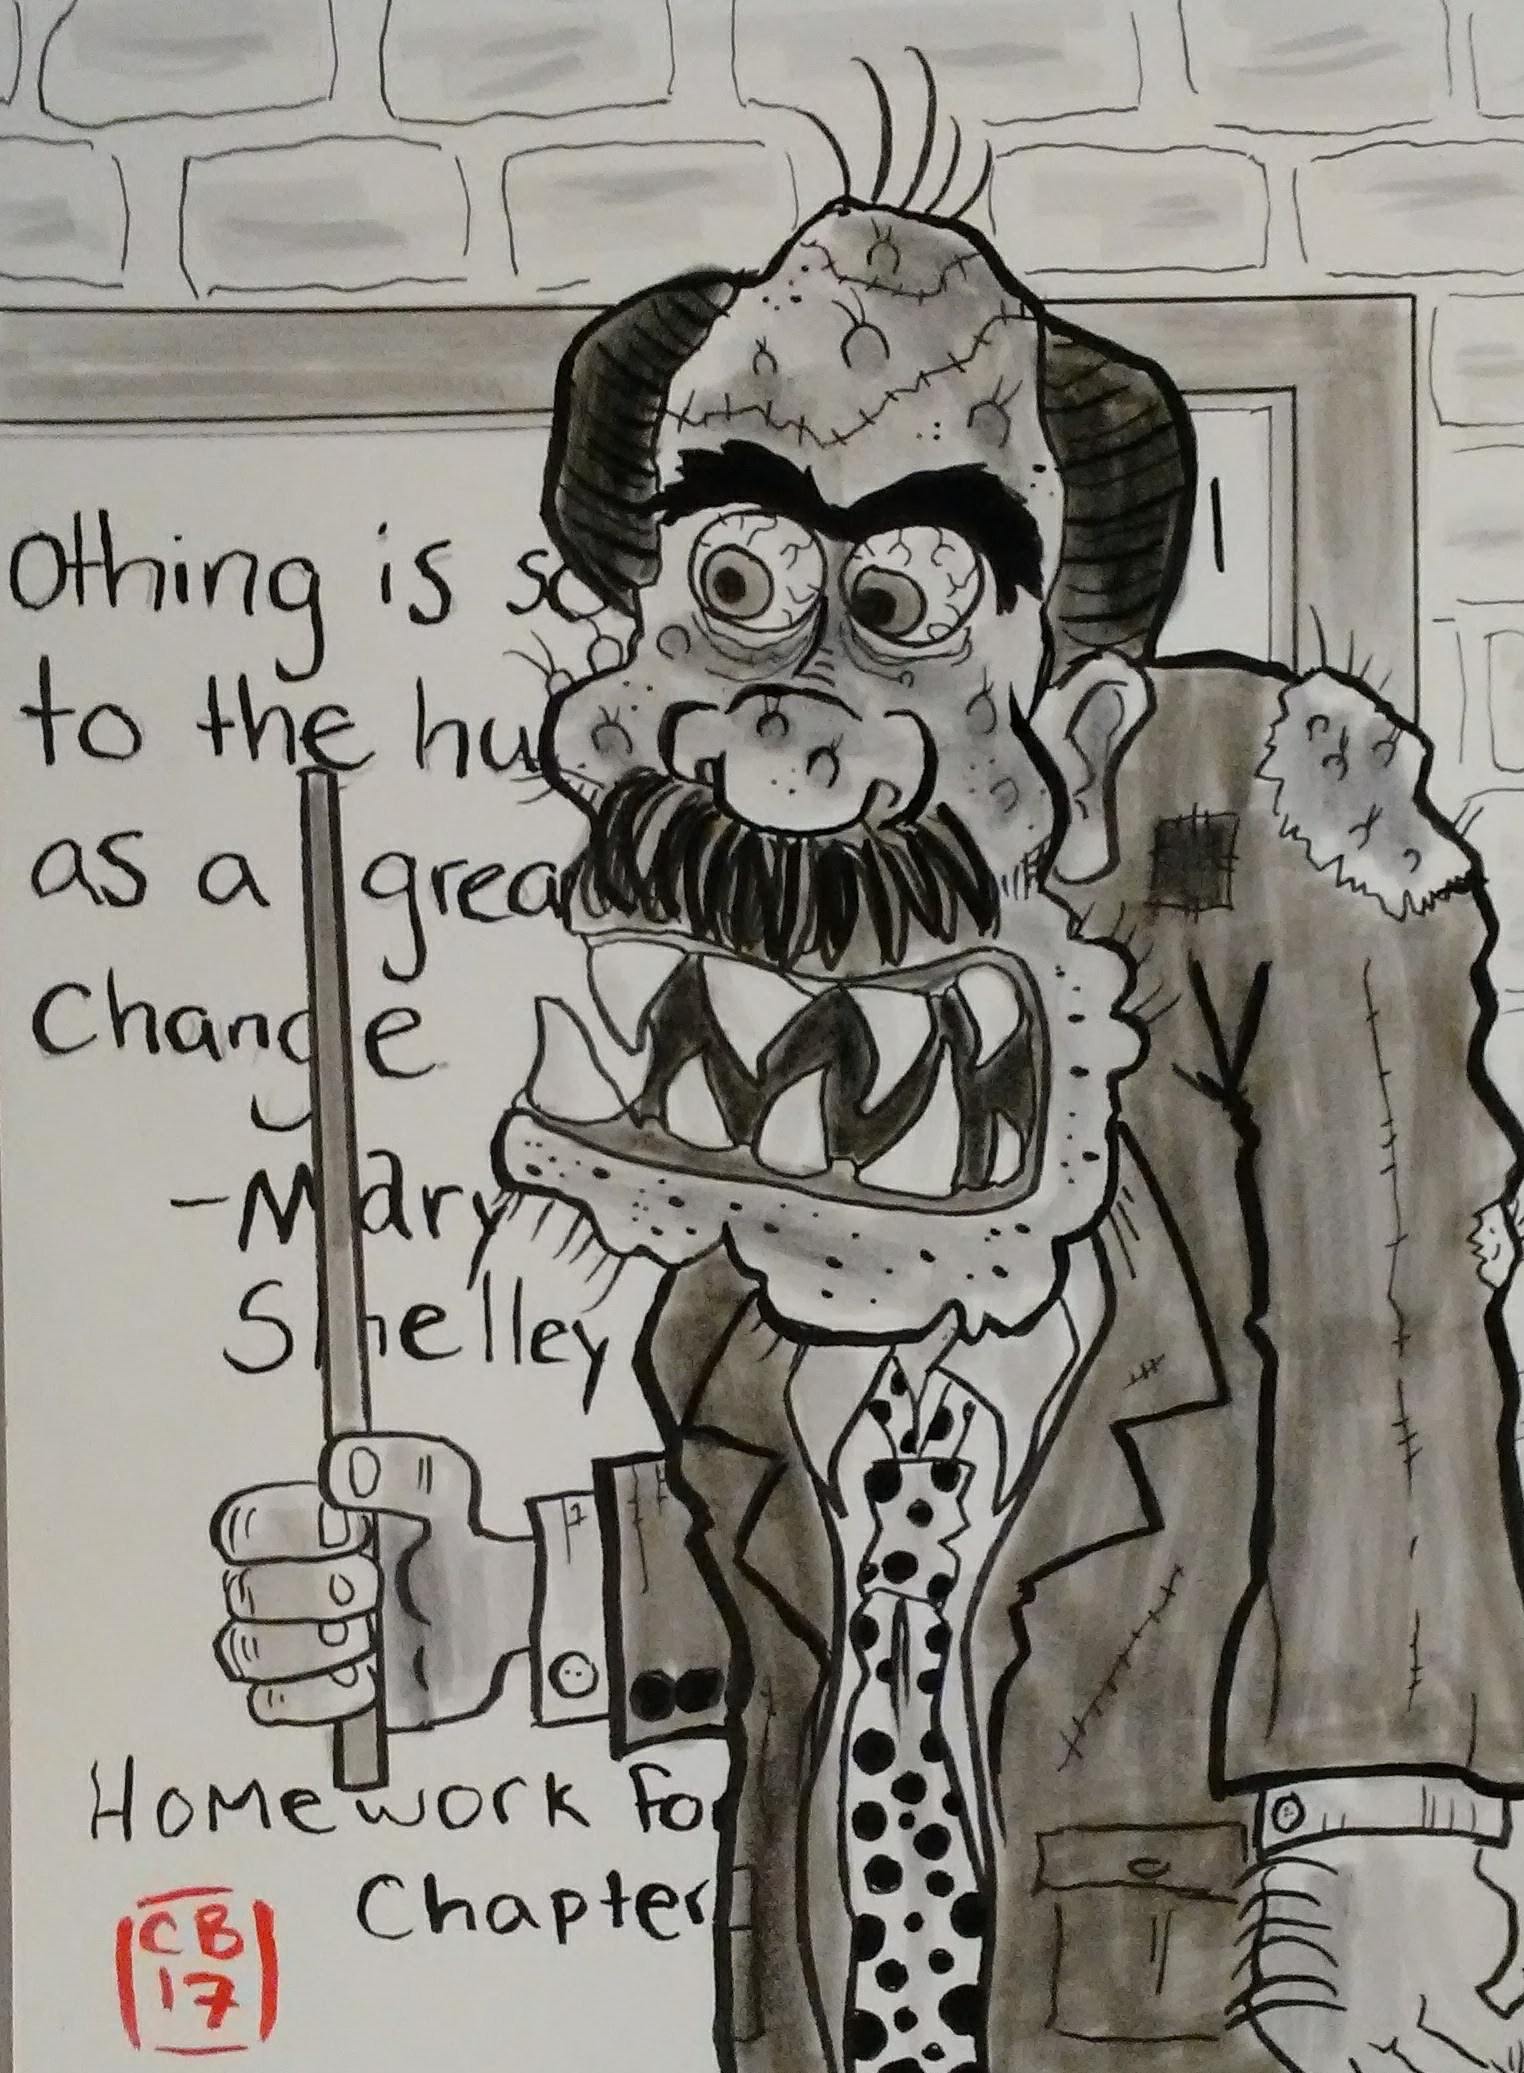 othing is so
to the hu
as a grea
Change
-Mary
Shelley
Homework For
Chapter
CB
17